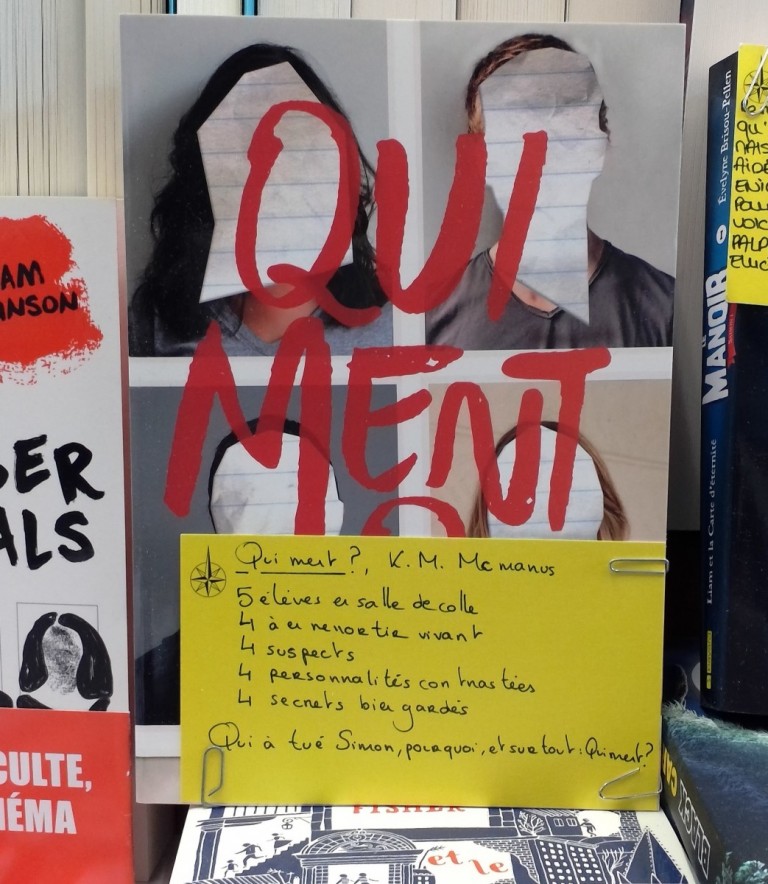 QUI
MENT
?
Qui ment?, K. M. Mc manus
5 élèves en salle de colle
4 à en ressortir vivant
4 suspects
4 personnalités contrastées
4 secrets bien gardés
Qui à tué Simon, pourquoi, et surtout : Qui ment?
AM
INSON
SER
ALS
CULTE,
NÉMA
Evelyne Brisou-Pellen
LE
MANOIR
1
Liam et la Carte d'éternité
QU'
POU
VOIC
FISHER
et le